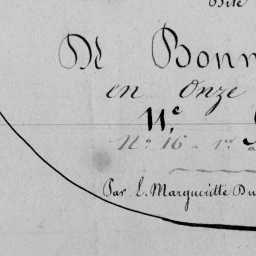 Mr Bonn
en Onze
11.e
N.o 16
Par L. Margueritte Du